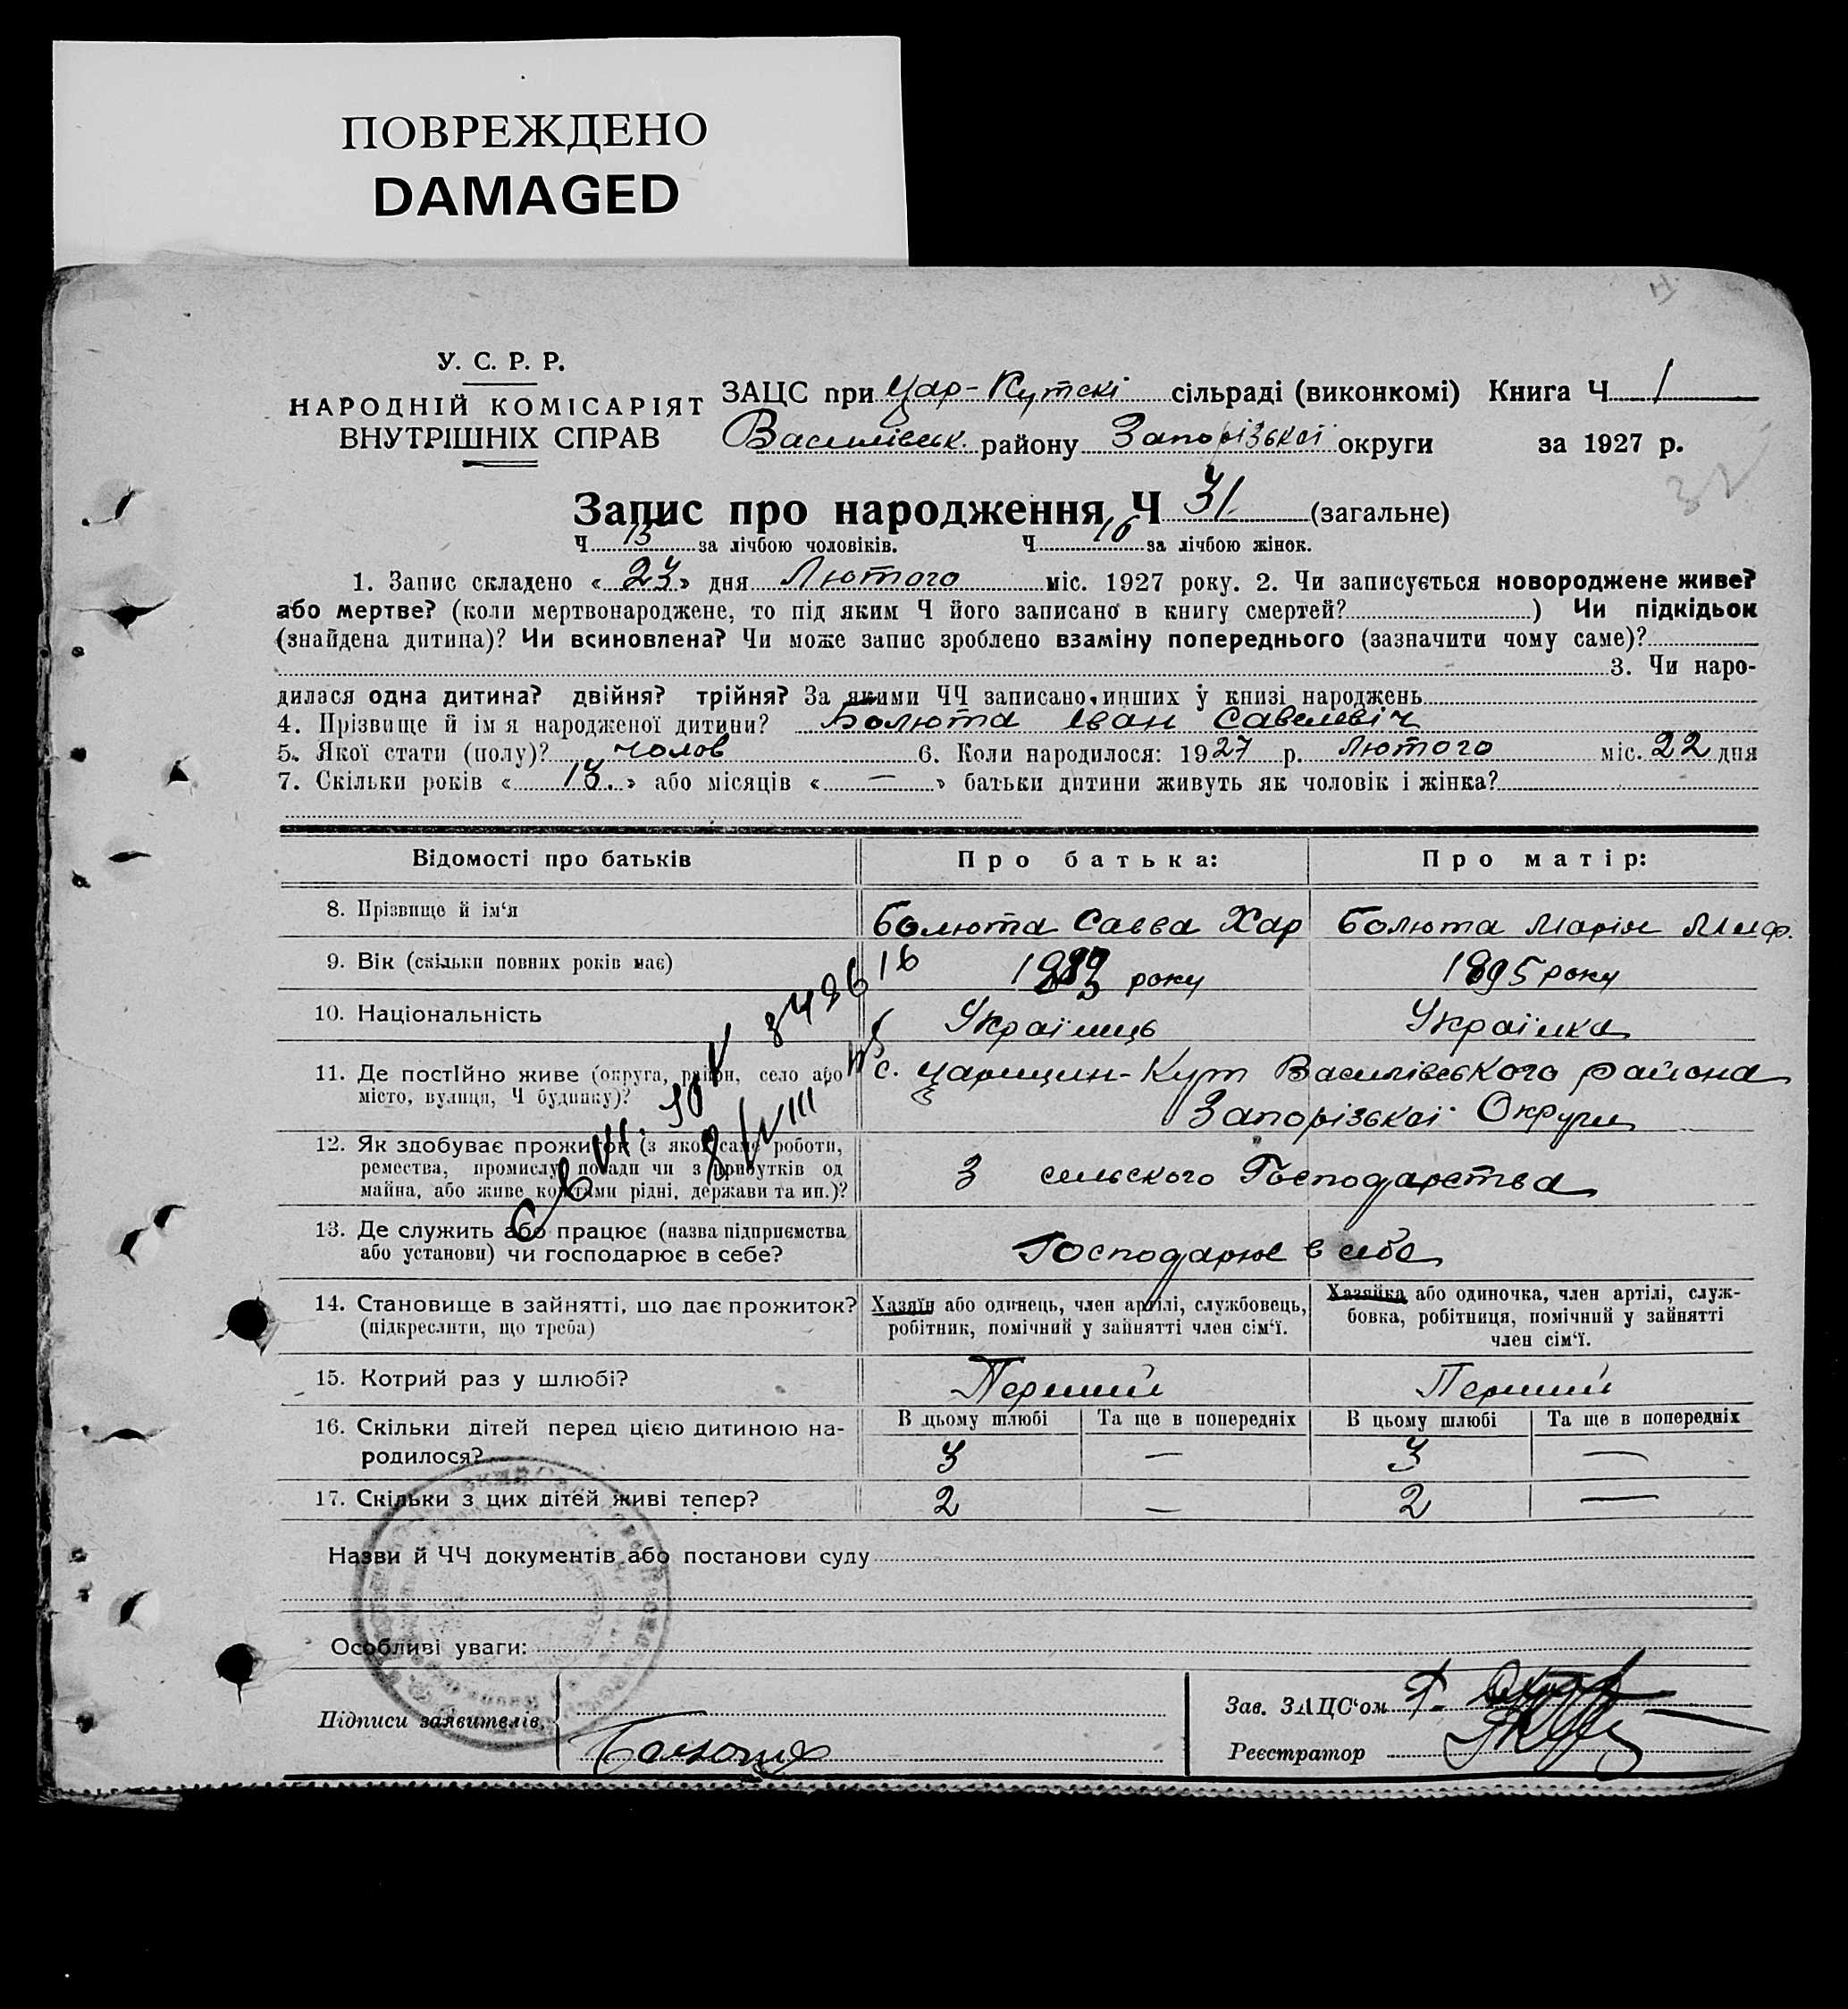 ПОВРЕЖДЕНО
DAMAGED
У. С. Р. Р.
НАРОДНІЙ КОМІСАРІЯТ
ВНУТРІШНІХ СПРАВ
ЗАЦС при Цар-Кутскі сільраді (виконкомі) Книга Ч 1
Василівськ. району Запорізької округи за 1927 р.
32
Запис про народження Ч 31 (загальне)
Ч 15 за лічбою чоловіків. Ч 16 за лічбою жінок.
1. Запис складено « 23 » дня Лютого міс. 1927 року. 2. Чи записується новороджене живе?
або мертве? (коли мертвонароджене, то під яким Ч його записано в книгу смертей? ) Чи підкідьок
(знайдена дитина)? Чи всиновлена? Чи може запис зроблено взаміну попереднього (зазначити чому саме)?
3. Чи наро-
дилася одна дитина? двійня? трійня? За якими ЧЧ записано инших у книзі народжень
4. Прізвище й ім я народженої дитини? Болюта Іван Савелевіч
5. Якої стати (полу)? чолов 6. Коли народилося: 1927 р. Лютого міс. 22 дня
7. Скільки років « 13. » або місяців « — » батьки дитини живуть як чоловік і жінка?
Відомості про батьків Про батька: Про матір:
8. Прізвище й ім‘я Болюта Савва Хар Болюта Марія Миф.
9. Вік (скільки повних років має) року 1895 року
10. Національність Українць Українка
11. Де постійно живе (округа, район, село або
місто, вулиця, Ч будинку)?
с. Царицин-Кут Василівського района
Запорізької Округи
12. Як здобуває прожиток (з якої саме роботи,
ремества, промислу, посади чи з прибутків од
майна, або живе коштами рідні, держави та ин.)?
З сельского Господарства
13. Де служить або працює (назва підприємства
або установи) чи господарює в себе?
Господарює в себе
14. Становище в зайнятті, що дає прожиток?
(підкреслити, що треба)
Хазяїн або одинець, член артілі, службовець,
робітник, помічний у зайнятті член сім‘ї.
Хазяйка або одиночка, член артілі, служ-
бовка, робітниця, помічний у зайнятті
член сім‘ї.
15. Котрий раз у шлюбі? Перший Перший
16. Скільки дітей перед цією дитиною на-
родилося?
В цьому шлюбі Та ще в попередніх В цьому шлюбі Та ще в попередніх
3 — 3 —
17. Скільки з цих дітей живі тепер? 2 — 2 —
Назви й ЧЧ документів або постанови суду
Особливі уваги:
Підписи заявителів. Болюта
Зав. ЗАЦС‘ом
Реєстратор